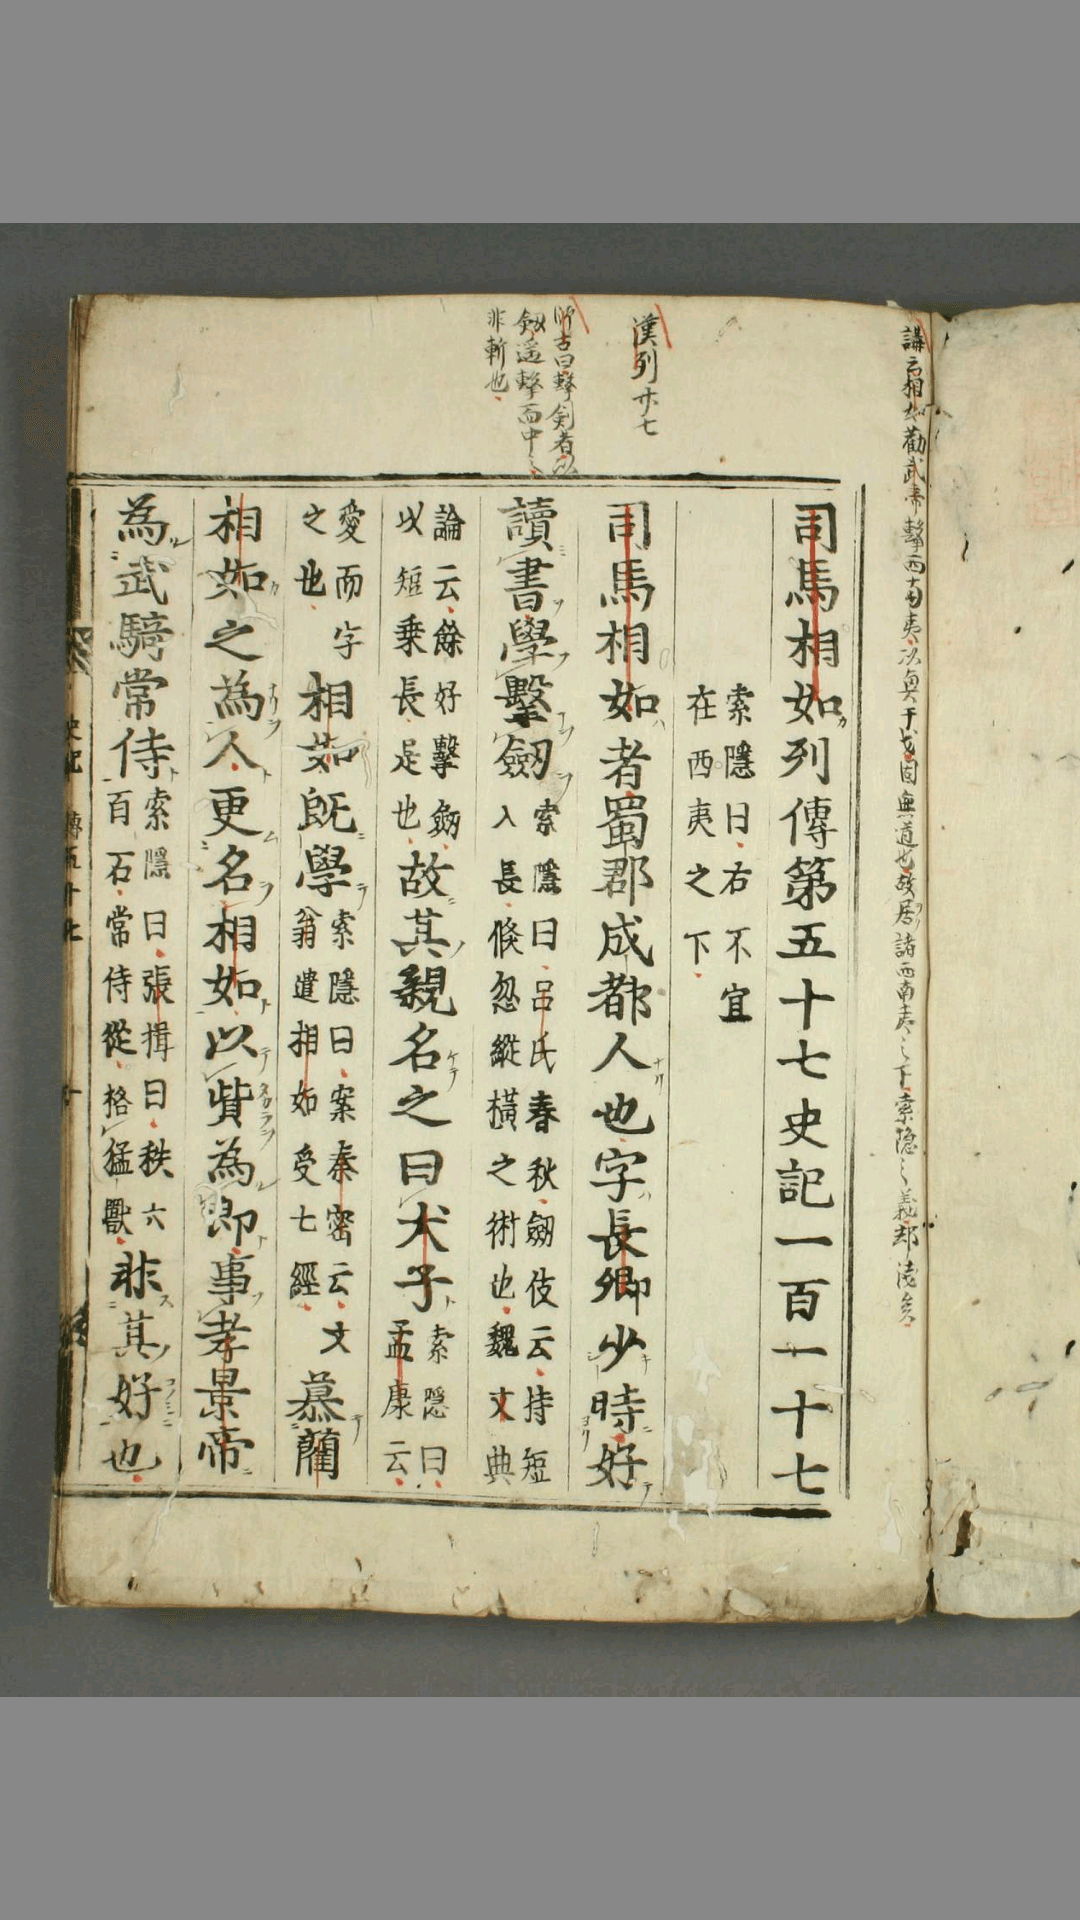 講云相如勸武帝擊西南夷以輿于戎固無道也故居諸西南夷之下索隠之義却淺矣
漢列廿七
師古曰擊剣者以
劔遥擊而中之
非斬也
司馬相如列傳第五十七史記一百一十七
索隱曰右不宜
在西夷之下
司馬相如者蜀郡成都人也字長卿少時好
讀書學擊劔
索隱曰呂氏春秋劔伎云持短
入長倏忽縱橫之術也魏文典
論云餘好擊劔
以短乗長是也
故其親名之曰犬子
索隱曰
孟康云
愛而字
之也
相如既學
索隱曰案秦密云文
翁遣相如受七經
慕藺
相如之為人更名相如以貲為郎事孝景帝
為武騎常侍
索隱曰張揖曰秩六
百石常侍從格猛獸
非其好也
史記 傳五十七